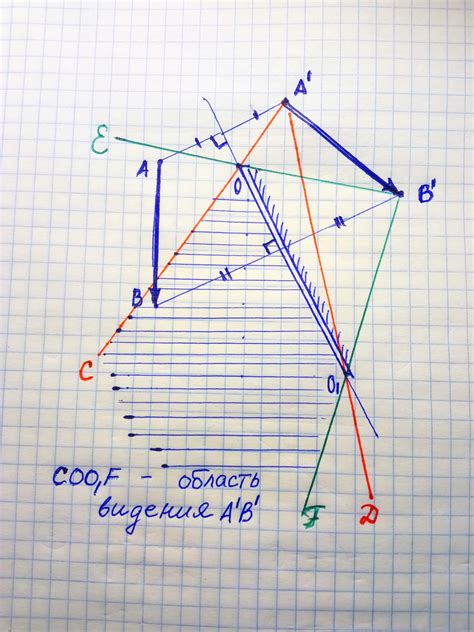 A'
Ɛ
A
O
B'
B
C
O₁
COO₁F - область
видения A'B'
F
D